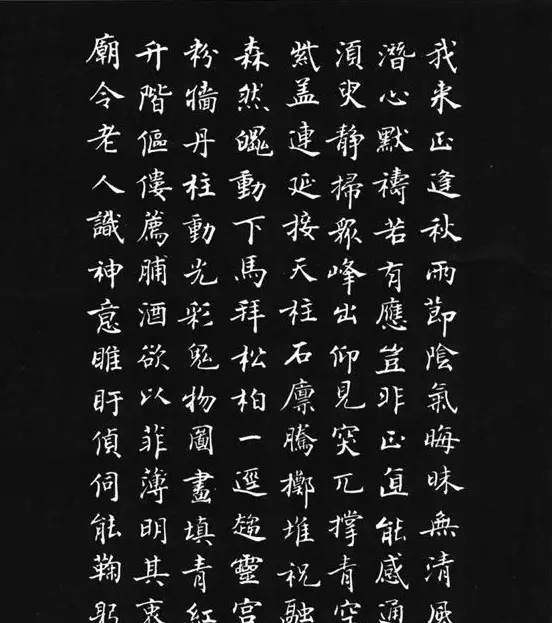 我来正逢秋雨節陰氣晦昧無清風
潛心默禱若有應豈非正直能感通
須臾静掃眾峰出仰見突兀撐青空
紫盖連延接天柱石廩騰擲堆祝融
森然魄動下馬拜松柏一逕趨靈宮
粉牆丹柱動光彩鬼物圖畫填青紅
升階傴僂薦脯酒欲以菲薄明其衷
廟令老人識神意睢盱偵伺能鞠躬